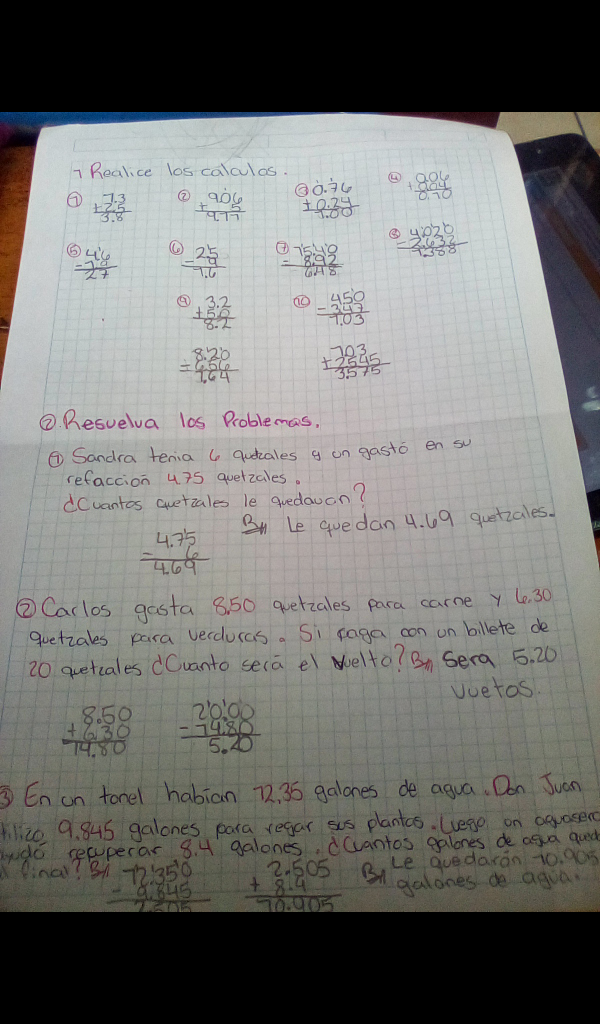 1 Realice los calculos.
① 1.3 ② 9.06 ③ 0.76 ④ 0.06
+2.5 + 5 +0.24 +0.04
3.8 9.11 1.00 0.10
⑤ 46 ⑥ 25 ⑦ 15.40 ⑧ 4.020
-19 - 9 - 8.92 -2.632
27 1.6 6.48 1.388
⑨ 3.2 ⑩ 450
+50 -347
8.2 1.03
8.20 103
-656 +2545
1.64 3.575
② Resuelva los Problemas.
① Sandra tenia 6 quetzales y un gastó en su
refacción 4.75 quetzales.
¿Cuantos quetzales le quedavan?
4.75 R// Le quedan 4.69 quetzales.
- 6
4.69
② Carlos gasta 8.50 quetzales para carne y 6.30
quetzales para verduras. Si paga con un billete de
20 quetzales ¿Cuanto será el vuelto? R// Sera 5.20
vuetos.
8.50 20.00
+6.30 -14.80
14.80 5.20
③ En un tonel habían 12,35 galones de agua. Don Juan
utilizo 9.845 galones para regar sus plantas. Luego un aguasero
ayudó recuperar 8.4 galones. ¿Cuantos galones de agua qued
al final? R// 12.350 2.505 R// Le quedarán 10.905
- 9.845 + 8.4 galones de agua.
2.505 10.905